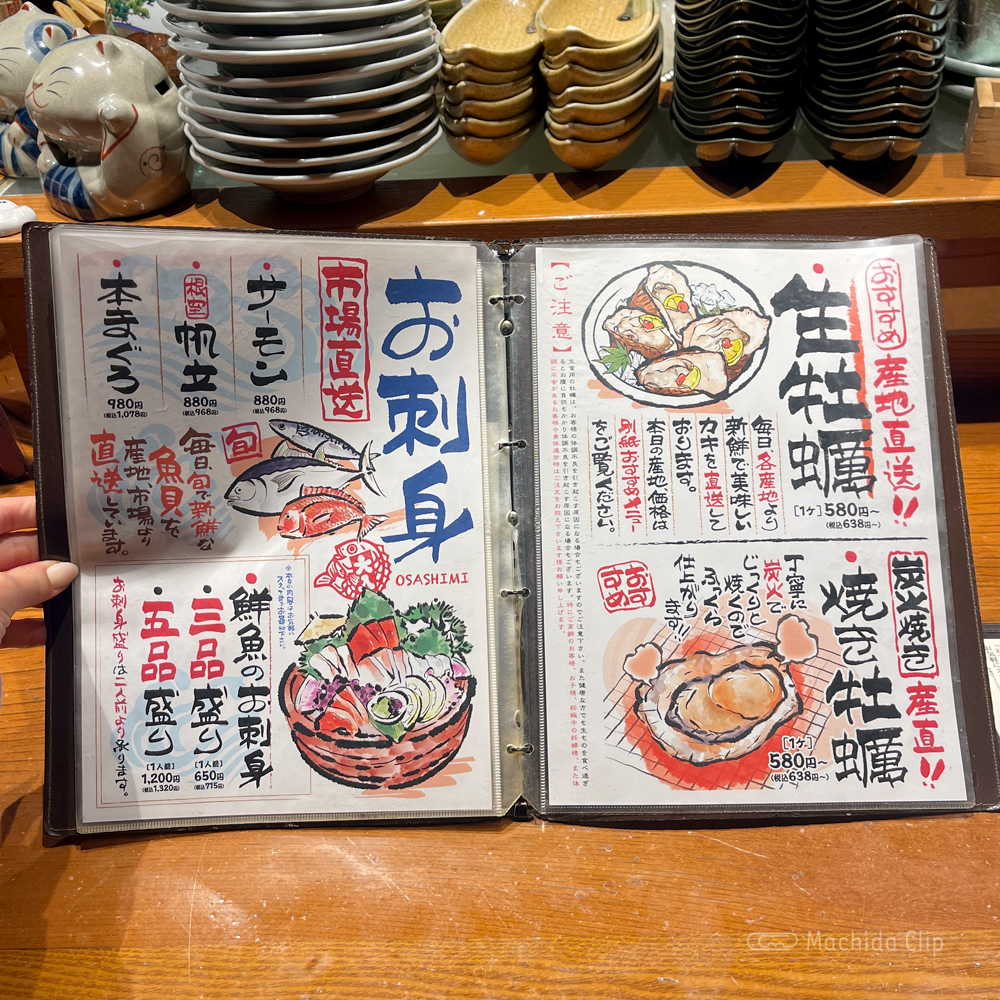 おすすめ
産地直送!!
生牡蠣
[1ケ]580円〜
(税込638円〜)
毎日各産地より
新鮮で美味しい
カキを直送して
おります。
本日の産地価格は
別紙おすすめメニュー
をご覧ください。
【ご注意】
炭火焼き
産直!!
焼き牡蠣
[1ケ]
580円〜
(税込638円〜)
丁寧に
炭火で
じっくりと
焼くので
ふっくら
仕上がり
ます!!
おすすめ
お刺身
OSASHIMI
市場直送
サーモン
880円
(税込968円)
根室
帆立
880円
(税込968円)
本まぐろ
980円
(税込1,078円)
旬
毎日、旬で新鮮な
魚貝を
産地・市場より
直送しています。
鮮魚のお刺身
三品盛り
(1人前)
650円
(税込715円)
五品盛り
(1人前)
1,200円
(税込1,320円)
お刺身盛りは二人前より承ります。
Machida Clip